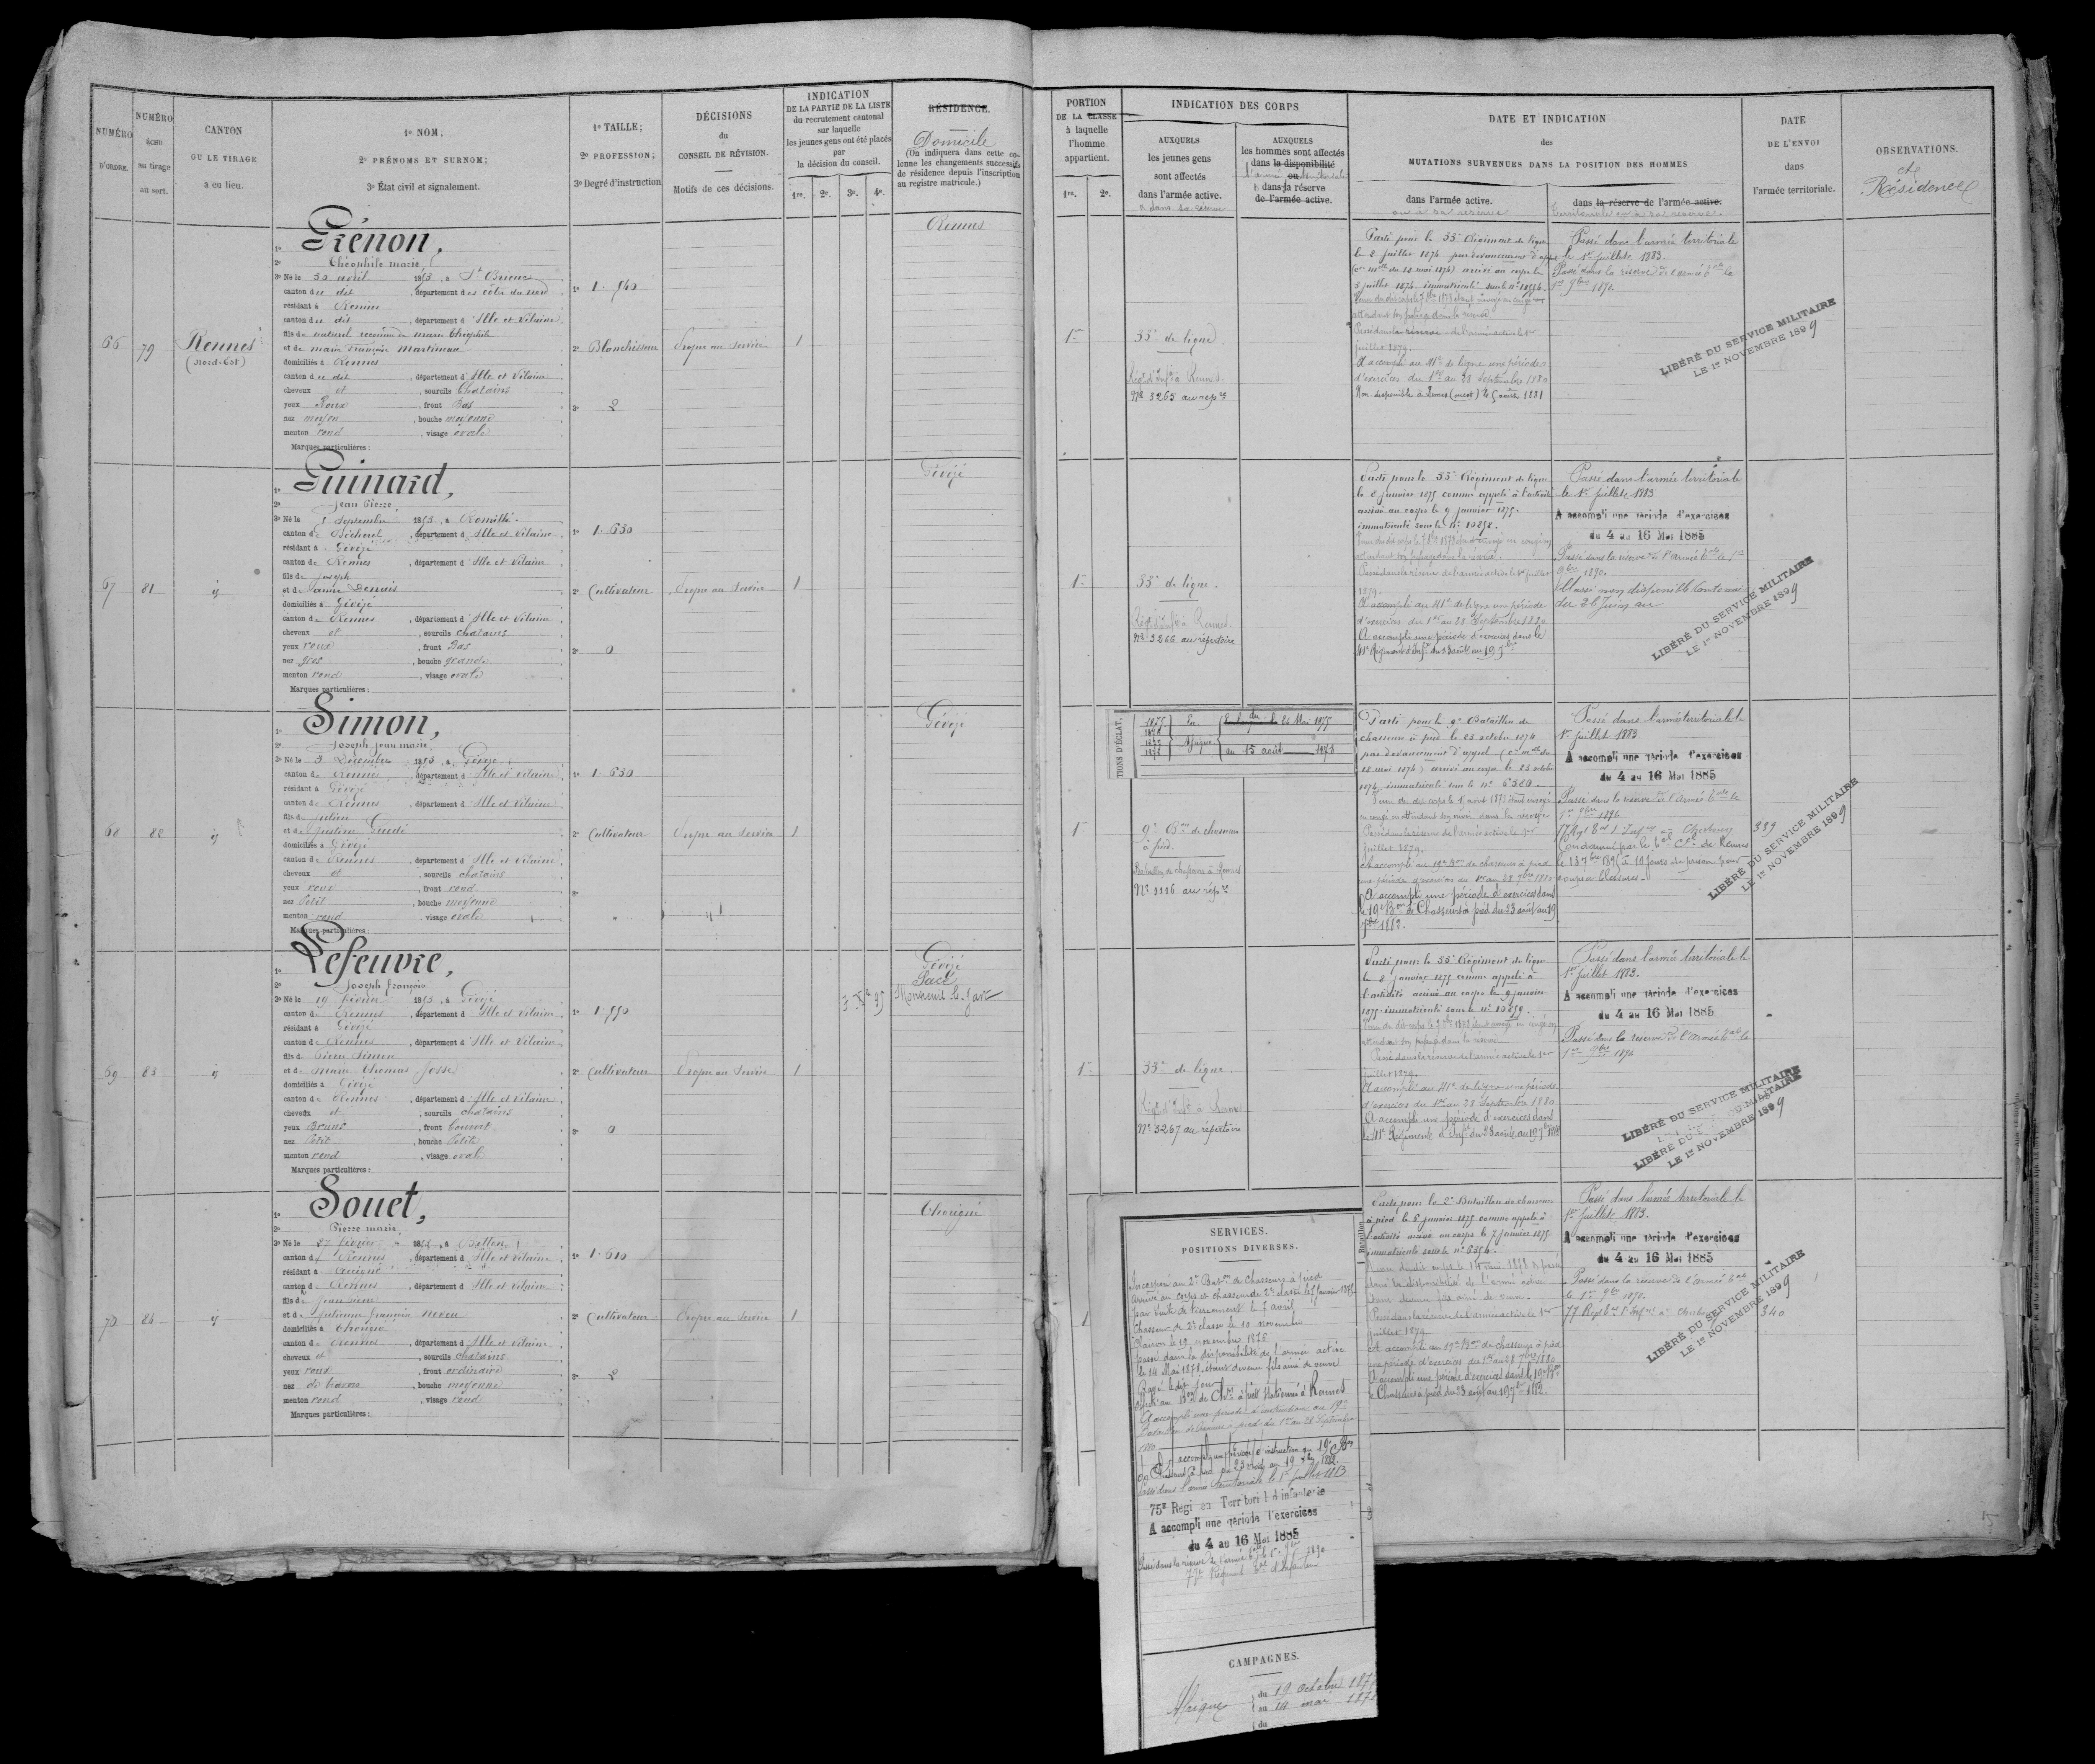 NUMÉRO
D'ORDRE.
NUMÉRO
ÉCHU
au tirage
au sort.
CANTON
OU LE TIRAGE
a eu lieu.
1º NOM;
2º PRÉNOMS ET SURNOM;
3º État civil et signalement.
1º TAILLE;
2º PROFESSION;
3º Degré d'instruction
DÉCISIONS
du
CONSEIL DE RÉVISION.
Motifs de ces décisions.
INDICATION
DE LA PARTIE DE LA LISTE
du recrutement cantonal
sur laquelle
les jeunes gens ont été placés
par
la décision du conseil.
1re. 2e. 3e. 4e.
RÉSIDENCE.
Domicile
(On indiquera dans cette co-
lonne les changements successifs
de résidence depuis l'inscription
au registre matricule.)
PORTION
DE LA CLASSE
à laquelle
l'homme
appartient.
1re. 2e.
INDICATION DES CORPS
AUXQUELS
les jeunes gens
sont affectés
dans l'armée active.
AUXQUELS
les hommes sont affectés
dans la disponibilité
ou
dans la réserve
de l'armée active.
DATE ET INDICATION
des
MUTATIONS SURVENUES DANS LA POSITION DES HOMMES
dans l'armée active.
ou à sa réserve
dans la réserve de l'armée active.
territoriale ou à sa réserve.
DATE
DE L'ENVOI
dans
l'armée territoriale.
OBSERVATIONS.
et
Résidence
66
79
Rennes
(Nord-Est)
1º Grénon,
2º Théophile marie
3º Né le 30 avril 1853, à St Brieuc
canton du dit, département des côtes du nord
résidant à Rennes
canton du dit, département d'Ille et Vilaine
fils de naturel reconnu de marie Théophile
et de marie Françoise Martineau
domiciliés à Rennes
canton du dit, département d'Ille et Vilaine
cheveux et, sourcils Chatains
yeux Roux, front Bas
nez moyen, bouche moyenne
menton rond, visage ovale
Marques particulières:
1º 1.540
2º Blanchisseur
3º 2
Propre au Service
1
Rennes
1
33e de ligne
Régt d'Infie à Rennes
No 3265 au repre
Parti pour le 33e Régiment de ligne
le 2 juillet 1874 par devancement d'appel
(cre mlle du 18 mai 1874) arrivé au corps le
5 juillet 1874. immatriculé sous le no 10556.
Passé dans la réserve de l'armée active le 1er
juillet 1879.
A accompli au 41e de ligne une période
d'exercices du 1er au 28 Septembre 1880
Passé dans l'armée territoriale
le 1er juillet 1883.
Passé dans la réserve de l'armée tale le
1er 9bre 1890.
LIBÉRÉ DU SERVICE MILITAIRE
LE 1er NOVEMBRE 1899
67
81
id
1º Guinard,
2º Jean Pierre
3º Né le 5 Septembre 1853, à Romillé
canton de Bécherel, département d'Ille et Vilaine
résidant à Gévezé
canton de Rennes, département d'Ille et Vilaine
fils de Joseph
et de Jeanne Dessais
domiciliés à Gévezé
canton de Rennes, département d'Ille et Vilaine
cheveux et, sourcils chatains
yeux roux, front Bas
nez gros, bouche grande
menton rond, visage ovale
Marques particulières:
1º 1.630
2º Cultivateur
3º 0
Propre au Service
1
Gévezé
1
33e de ligne.
Régt d'Infie à Rennes
No 3266 au répertoire
Parti pour le 33e Régiment de ligne
le 8 janvier 1875 comme appelé à l'activité
arrivé au corps le 9 janvier 1875.
immatriculé sous le no 10858.
Passé dans la réserve de l'armée active le 1er juillet
1879.
A accompli au 41e de ligne une période
d'exercices du 1er au 28 Septembre 1880
A accompli une période d'exercices dans le
41e Régiment d'Infie du 23 août au 19 7bre
Passé dans l'armée territoriale
le 1er juillet 1883
A accompli une période d'exercices
du 4 au 16 Mai 1885
Passé dans la réserve de l'Armée tale le 1er
9bre 1890.
Classé non disponible
LIBÉRÉ DU SERVICE MILITAIRE
LE 1er NOVEMBRE 1899
68
82
id
1º Simon,
2º Joseph Jean marie,
3º Né le 3 Décembre 1853, à Gévezé
canton de Rennes, département d'Ille et Vilaine
résidant à Gévezé
canton de Rennes, département d'Ille et Vilaine
fils de Julien
et de Justine Guedé
domiciliés à Gévezé
canton de Rennes, département d'Ille et Vilaine
cheveux et, sourcils chatains
yeux roux, front rond
nez Petit, bouche moyenne
menton rond, visage ovale
Marques particulières:
1º 1.630
2º Cultivateur
3º
Propre au Service
1
Gévezé
1
TIONS D'ÉCLAT,
Afrique
du 24 Mai 1875
au 15 août 1878
9e Bon de chasseurs
à pied
Bataillon de chasseurs à Rennes
No 1116 au repre
Parti pour le 9e Bataillon de
chasseurs à pied le 23 octobre 1874
par devancement d'appel (cre mlle du
18 mai 1874) arrivé au corps le 25 octobre
1874 immatriculé sous le no 6380.
Passé dans la réserve de l'armée active le 1er
juillet 1879.
A accompli au 19e Bon de chasseurs à pied
une période d'exercices du 1er au 28 7bre 1880
A accompli une période d'exercices dans
le 19e Bon de Chasseurs à pied du 23 août au 19
7bre 1882.
Passé dans l'armée territoriale le
1er juillet 1883.
A accompli une période d'exercices
du 4 au 16 Mai 1885
Passé dans la réserve de l'Armée tale le
1er 9bre 1890
339
Condamné par le tal cel de Rennes
à 10 jours de prison pour
coups et blessures.
LIBÉRÉ DU SERVICE MILITAIRE
LE 1er NOVEMBRE 1899
69
83
id
1º Lefeuvre,
2º Joseph françois
3º Né le 19 février 1853, à Gévezé
canton de Rennes, département d'Ille et Vilaine
résidant à Gévezé
canton de Rennes, département d'Ille et Vilaine
fils de Pierre Simon
et de Marie Thomas Josse
domiciliés à Gévezé
canton de Rennes, département d'Ille et Vilaine
cheveux et, sourcils chatains
yeux Bruns, front Couvert
nez Petit, bouche Petite
menton rond, visage ovale
Marques particulières:
1º 1.550
2º Cultivateur
3º 0
Propre au Service
1
Gévezé
Montreuil le Gast
1
33e de ligne.
Régt d'Infie à Rennes
No 3267 au répertoire
Parti pour le 33e Régiment de ligne
le 8 janvier 1875 comme appelé à
l'activité arrivé au corps le 9 janvier
1875 immatriculé sous le no 10859.
Passé dans la réserve de l'armée active le 1er
juillet 1879.
A accompli au 41e de ligne une période
d'exercices du 1er au 28 Septembre 1880
A accompli une période d'exercices dans
le 41e Régiment d'Infie du 23 août au 19 7bre 1882
Passé dans l'armée territoriale le
1er juillet 1883.
A accompli une période d'exercices
du 4 au 16 Mai 1885
Passé dans la réserve de l'Armée tale le
1er 9bre 1890
LIBÉRÉ DU SERVICE MILITAIRE
LIBÉRÉ DU SERVICE MILITAIRE
LE 1er NOVEMBRE 1899
70
84
id
1º Souet,
2º Pierre marie
3º Né le 27 février 1853, à Betton
canton de Rennes, département d'Ille et Vilaine
résidant à
canton de Rennes, département d'Ille et Vilaine
fils de Jean Pierre
et de Julienne françoise Neveu
domiciliés à Thorigné
canton de Rennes, département d'Ille et Vilaine
cheveux et, sourcils chatains
yeux roux, front ordinaire
nez de travers, bouche moyenne
menton rond, visage rond
Marques particulières:
1º 1.610
2º Cultivateur
3º 2
Propre au Service
1
Thorigné
1
SERVICES.
POSITIONS DIVERSES.
Incorporé au 2e Baton de Chasseurs à pied
Arrivé au corps et chasseur de 2e classe le 7 janvier 1875
Clairon le 19 novembre 1876
passé dans la disponibilité de l'armée active
le 14 Mai 1878, étant devenu fils ainé de veuve
Rayé le dit jour
A accompli une période d'instruction au 19e
Bataillon de Chasseurs à pied du 1er au 28 Septembre
1880
A accompli une période d'instruction au 19e Bon
de Chasseurs à pied du 23 août au 19 7bre 1882.
Passé dans l'armée territoriale le 1er juillet 1883
75e Régi en Territori l d'infanterie
A accompli une période d'exercices
du 4 au 16 Mai 1885
Passé dans la réserve de l'armée tale le 1er 9bre 1890
77e Régiment tal d'Infanterie
CAMPAGNES.
Afrique
du 19 octobre 187
au 14 mai 187
du
Parti pour le 2e Bataillon de chasseurs
à pied le 5 janvier 1875 comme appelé à
l'activité arrivé au corps le 7 janvier 1875
immatriculé sous le no 6354.
Passé dans la réserve de l'armée active le 1er
juillet 1879.
A accompli au 19e Bon de chasseurs à pied
une période d'exercices du 1er au 28 7bre 1880
A accompli une période d'exercices dans le 19e Bon
de Chasseurs à pied du 23 août au 19 7bre 1882.
Passé dans l'armée territoriale le
1er juillet 1883.
A accompli une période d'exercices
du 4 au 16 Mai 1885
Passé dans la réserve de l'armée tale
le 1er 9bre 1890.
340
LIBÉRÉ DU SERVICE MILITAIRE
LE 1er NOVEMBRE 1899
15